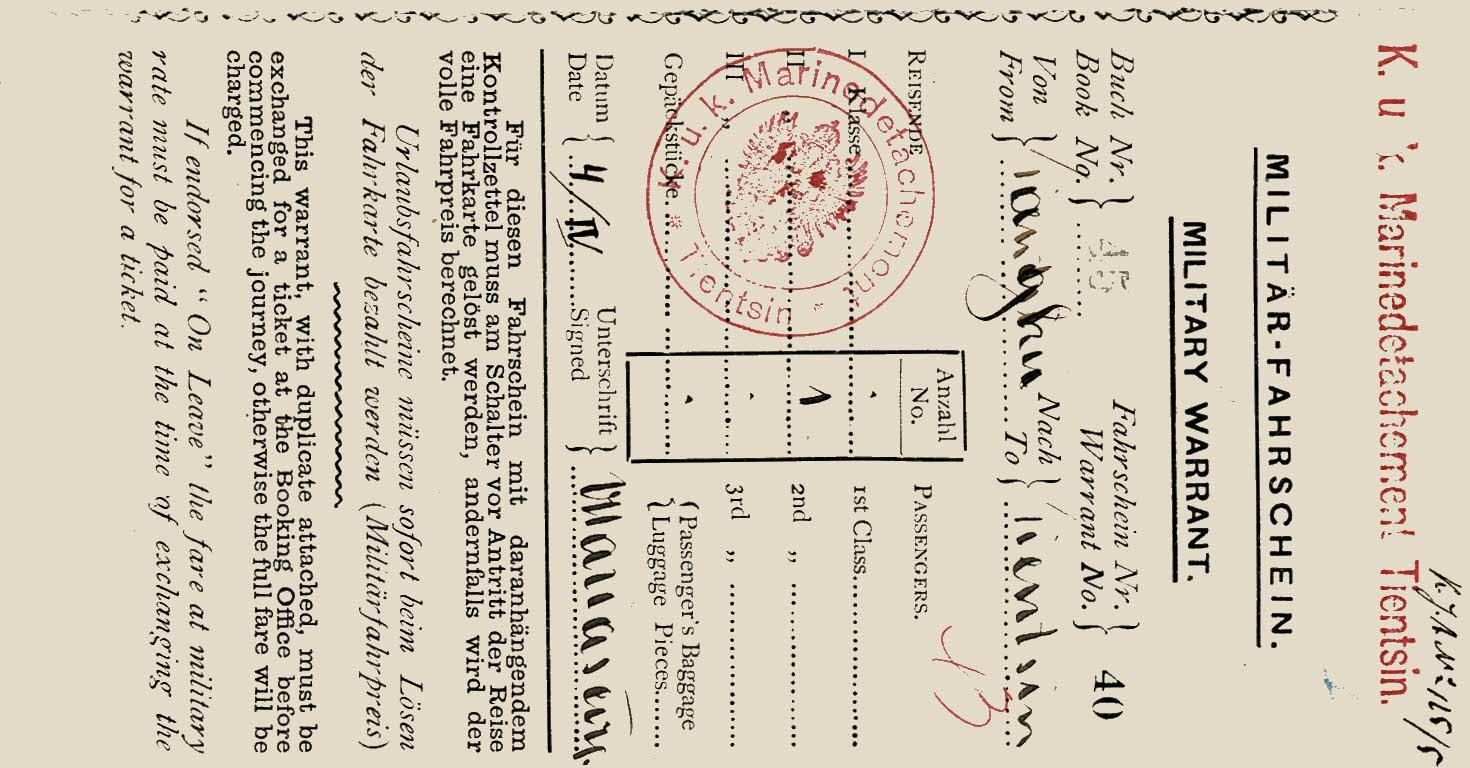 K. u k. Marinedetachement Tientsin.
MILITÄR-FAHRSCHEIN.
MILITARY WARRANT.
Buch Nr. } 45 Fahrschein Nr. } 40
Book No. } Warrant No. }
Von } Nach } Tientsin
From } To }
REISENDE Anzahl PASSENGERS.
No.
I Klasse 1st Class
II „ 1 2nd „
III „ 3rd „
Gepäckstücke { Passenger's Baggage
{ Luggage Pieces
K. u. k. Marinedetachement
* Tientsin *
Datum { 4/IV Unterschrift }
Date { Signed }
Für diesen Fahrschein mit daranhängendem
Kontrollzettel muss am Schalter vor Antritt der Reise
eine Fahrkarte gelöst werden, andernfalls wird der
volle Fahrpreis berechnet.
Urlaubsfahrscheine müssen sofort beim Lösen
der Fahrkarte bezahlt werden (Militärfahrpreis)
This warrant, with duplicate attached, must be
exchanged for a ticket at the Booking Office before
commencing the journey, otherwise the full fare will be
charged.
If endorsed “On Leave” the fare at military
rate must be paid at the time of exchanging the
warrant for a ticket.